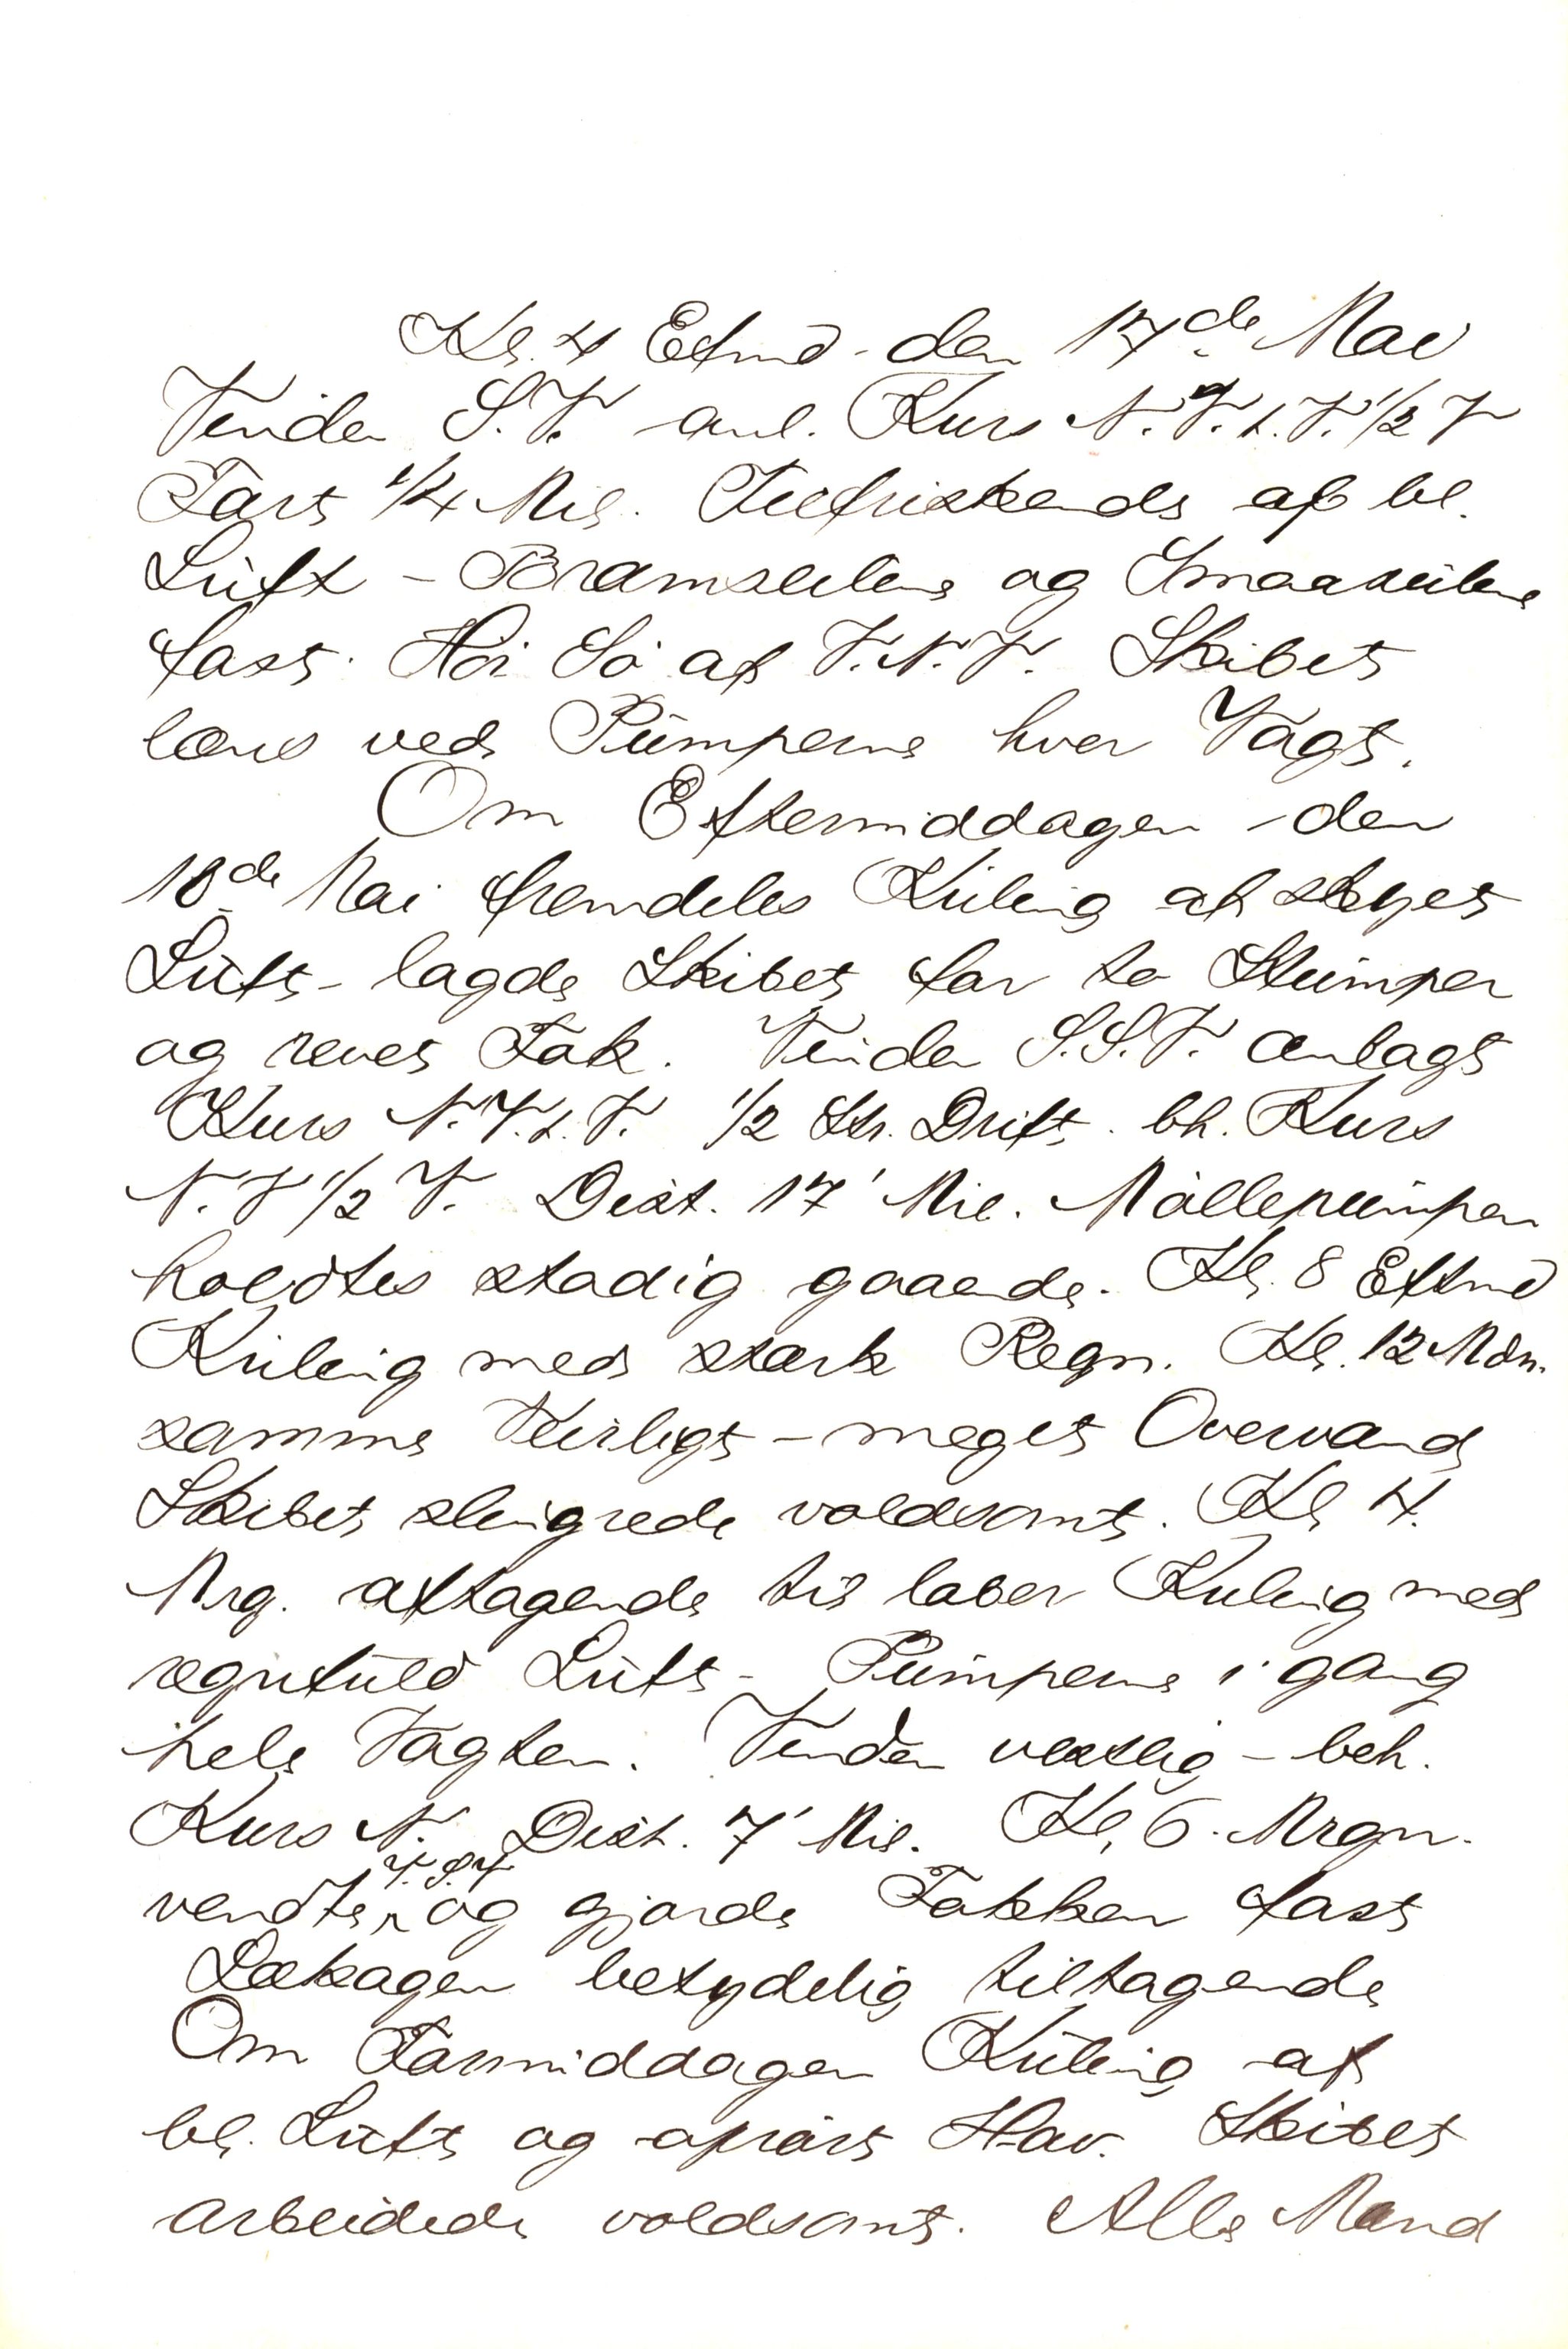 Kl. 4 Eftmd. den 17de Mai
Vinden S.V. anl. Kurs N.V.t.V. 1/2 V
Fart 1/4 Mil. Tilfriskende af bl.
Luft – Bramseilene og Smaaseilene
fast. Høi Sø af V.N.V. Skibet
læns ved Pumperne hver Vagt.
Om Eftermiddagen den
18de Mai fremdeles Kuling af skyet
Luft – lagde Skibet for to Stumper
og revet Fok. Vinden S.S.V. anlagt
Kurs N.V.t.V. 1/2 Str. Drift. bh. Kurs
N.V 1/2 V. Dist. 17' Mil. Møllepumpen
holdtes stadig gaaende. Kl. 8 Eftmd
Kuling med stærk Regn. Kl. 12 Mdn.
samme Veirligt – meget Overvand
Skibet slingrede voldsomt. Kl 4.
Mrg. aftagende til laber Kuling med
regnfuld Luft – Pumperne i gang
hele Vagten. Vinden vestlig – beh.
Kurs N. Dist. 7' Mil. Kl. 6. Mrgn.
V.S.V
vendte og gjorde Fokken fast
Lækagen betydelig tiltagende
Om Formiddagen Kuling af
bl. Luft og oprørt Hav. Skibet
arbeidede voldsomt. Alle Mand